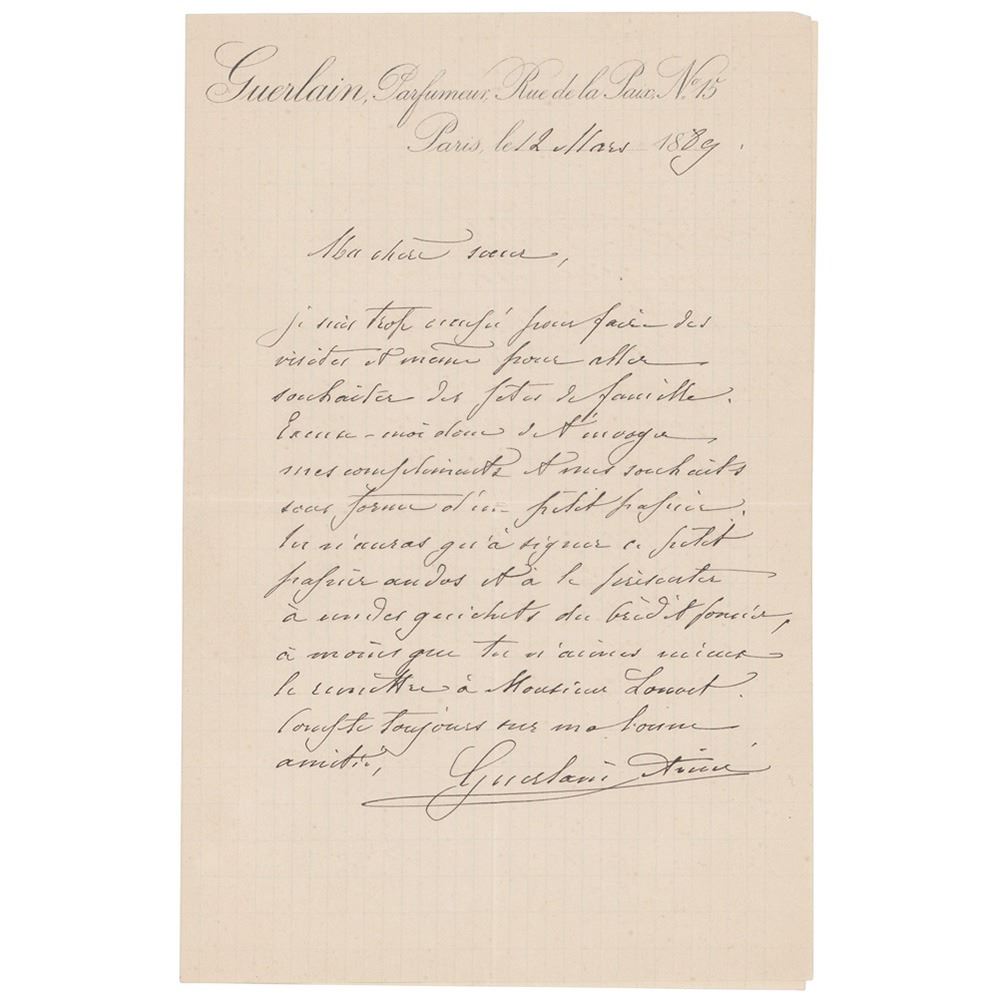 Guerlain, Parfumeur, Rue de la Paix, No 15
Paris, le 12 Mars 1889.
Ma chère sœur,
je suis trop occupé pour faire des
visites et même pour aller
souhaiter des fêtes de famille.
Excuse-moi donc de t'envoyer
mes compliments et mes souhaits
sous forme d'un petit papier.
Tu n'auras qu'à signer ce petit
papier au dos et à le présenter
à un des guichets du Crédit foncier,
à moins que tu n'aimes mieux
le remettre à Monsieur
Compte toujours sur ma bonne
amitié,
Guerlain Aimé